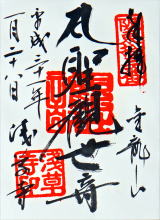 奉拝
金龍山
聖觀世音
平成三十年
一月二十八日
浅草寺
浅草寺印